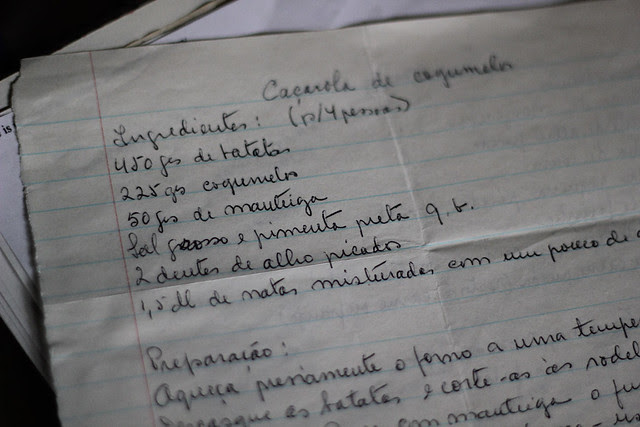 Caçarola de cogumelos
Ingredientes: (p/4 pessoas)
450 grs de batatas
225 grs cogumelos
50 grs de manteiga
Sal grosso e pimenta preta q. b.
2 dentes de alho picados
1,5 dl de natas misturadas com um pouco de
Preparação:
Aqueça previamente o forno a uma tempe
Descasque as batatas e corte-as às rodel
com manteiga o fu
is